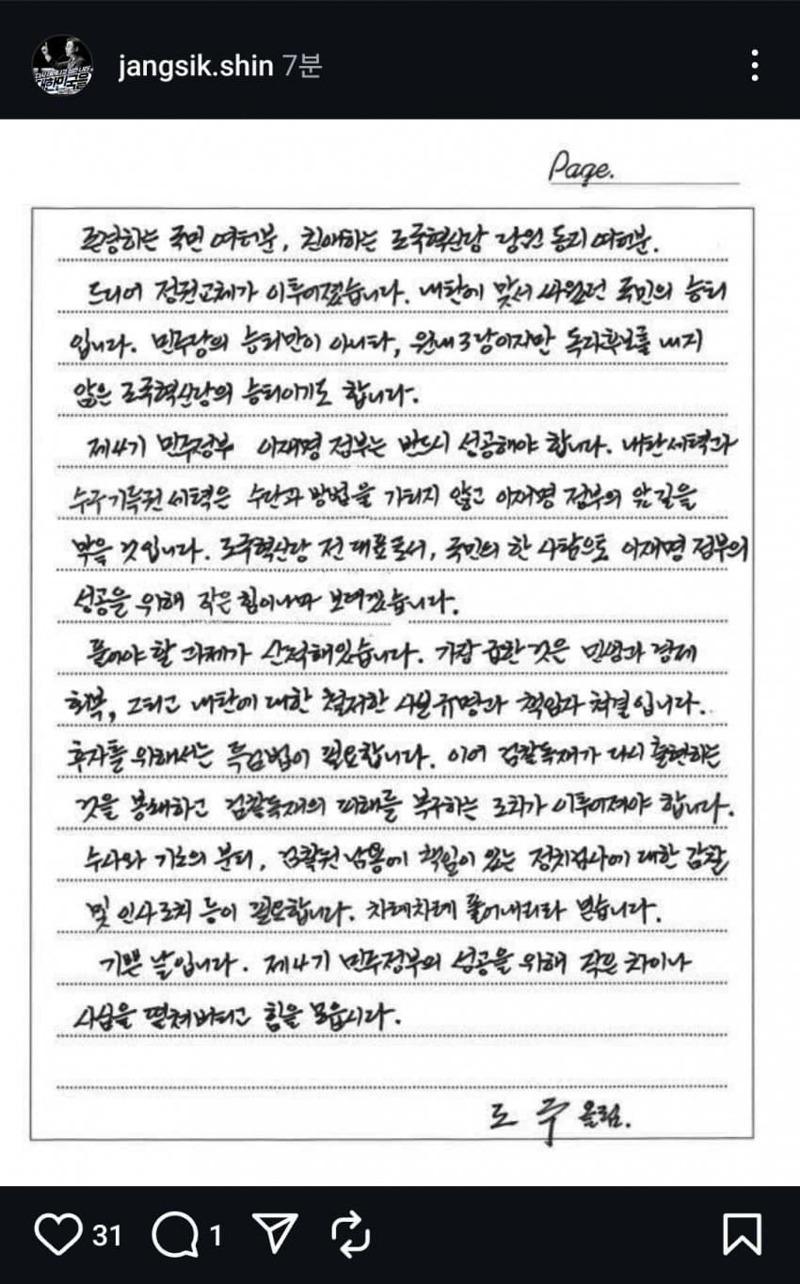 jangsik.shin 7분
Page.
존경하는 국민 여러분, 친애하는 조국혁신당 당원 동지 여러분.
드디어 정권교체가 이루어졌습니다. 내란에 맞서 싸웠던 국민의 승리
입니다. 민주당의 승리만이 아니라, 원내 3당이지만 독자후보를 내지
않은 조국혁신당의 승리이기도 합니다.
제4기 민주정부 이재명 정부는 반드시 성공해야 합니다. 내란세력과
수구기득권 세력은 수단과 방법을 가리지 않고 이재명 정부의 앞길을
막을 것입니다. 조국혁신당 전 대표로서, 국민의 한 사람으로 이재명 정부의
성공을 위해 작은 힘이나마 보태겠습니다.
풀어야 할 과제가 산적해있습니다. 가장 급한 것은 민생과 경제
회복, 그리고 내란에 대한 철저한 사실규명과 책임자 처벌입니다.
후자를 위해서는 특검법이 필요합니다. 이어 검찰독재가 다시 출현하는
것을 봉쇄하고 검찰독재의 피해를 복구하는 조치가 이루어져야 합니다.
수사와 기소의 분리, 검찰권 남용에 책임이 있는 정치검사에 대한 감찰
및 인사조치 등이 필요합니다. 차례차례 풀어내리라 믿습니다.
기쁜 날입니다. 제4기 민주정부의 성공을 위해 작은 차이나
사심을 떨쳐버리고 힘을 모읍시다.
조국 올림.
31 1